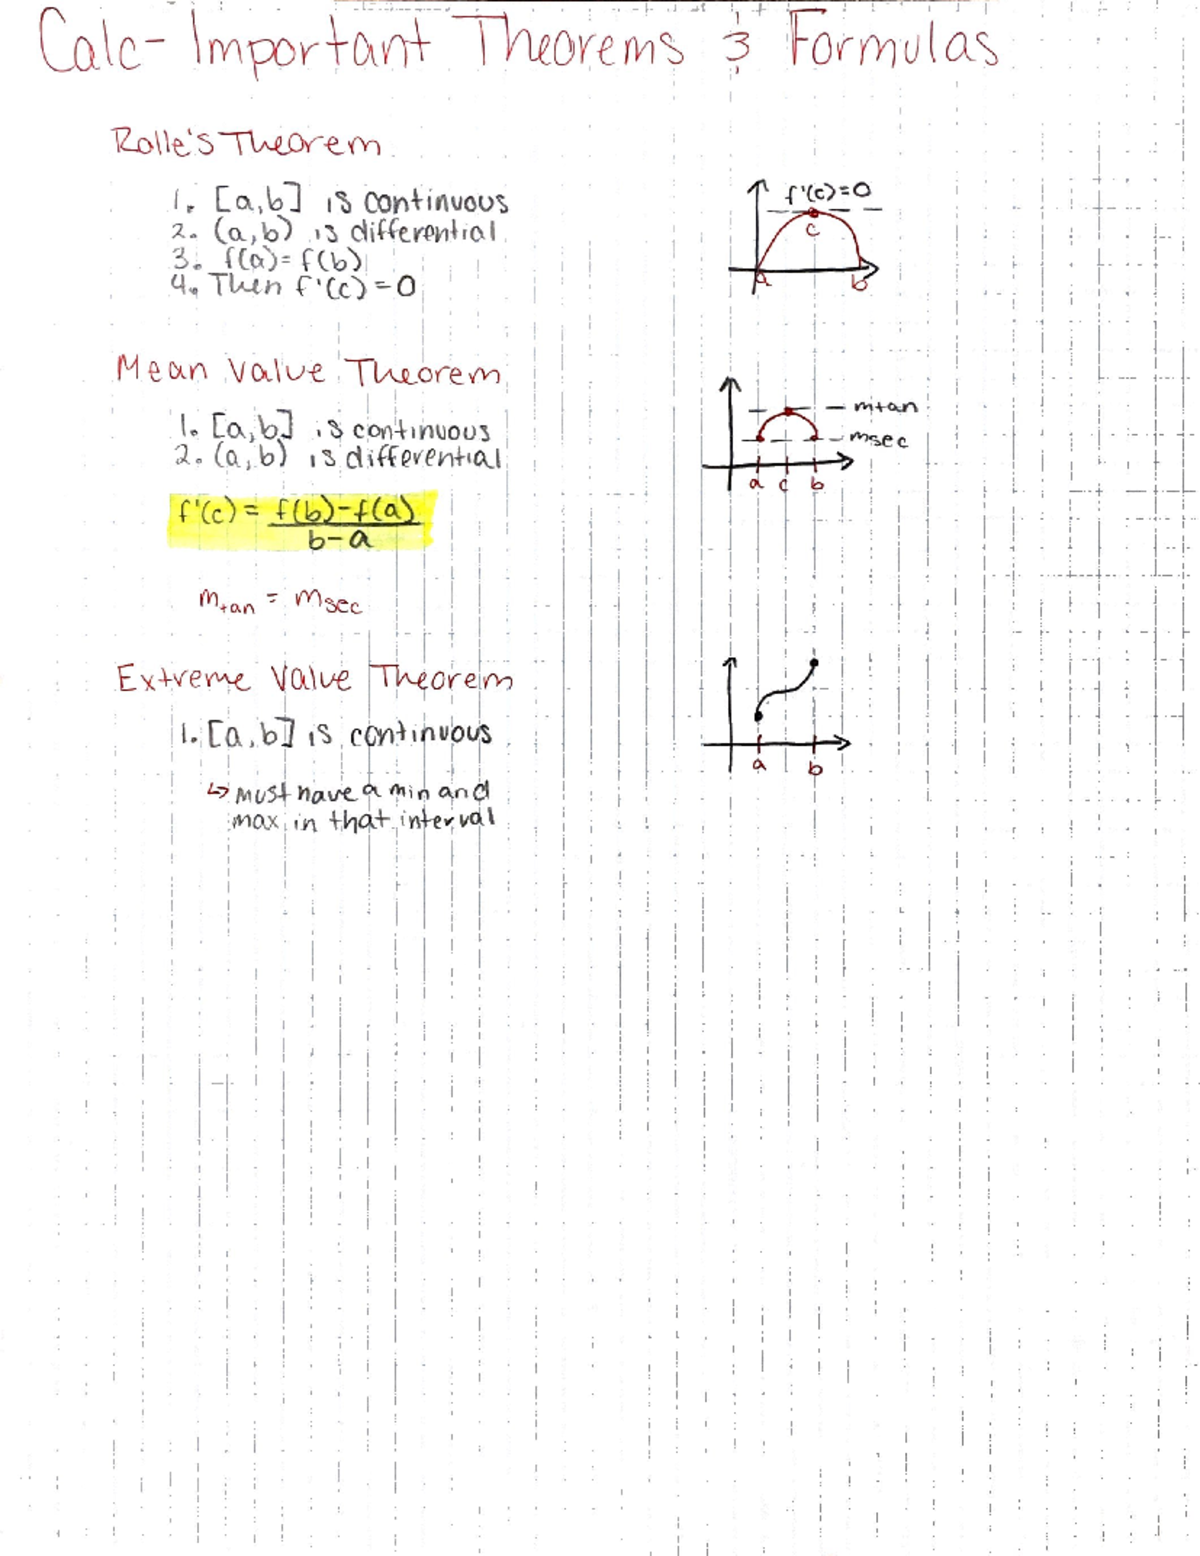 Calc- Important Theorems & Formulas
Rolle's Theorem
1. [a,b] is continuous
2. (a,b) is differential
3. f(a)= f(b)
4. Then f'(c)=0
f'(c)=0
c
a
b
Mean Value Theorem
1. [a,b] is continuous
2. (a,b) is differential
f'(c) = f(b)-f(a)
b-a
mtan = msec
mtan
msec
a c b
Extreme Value Theorem
1. [a,b] is continuous
↳ must have a min and
max in that interval
a b